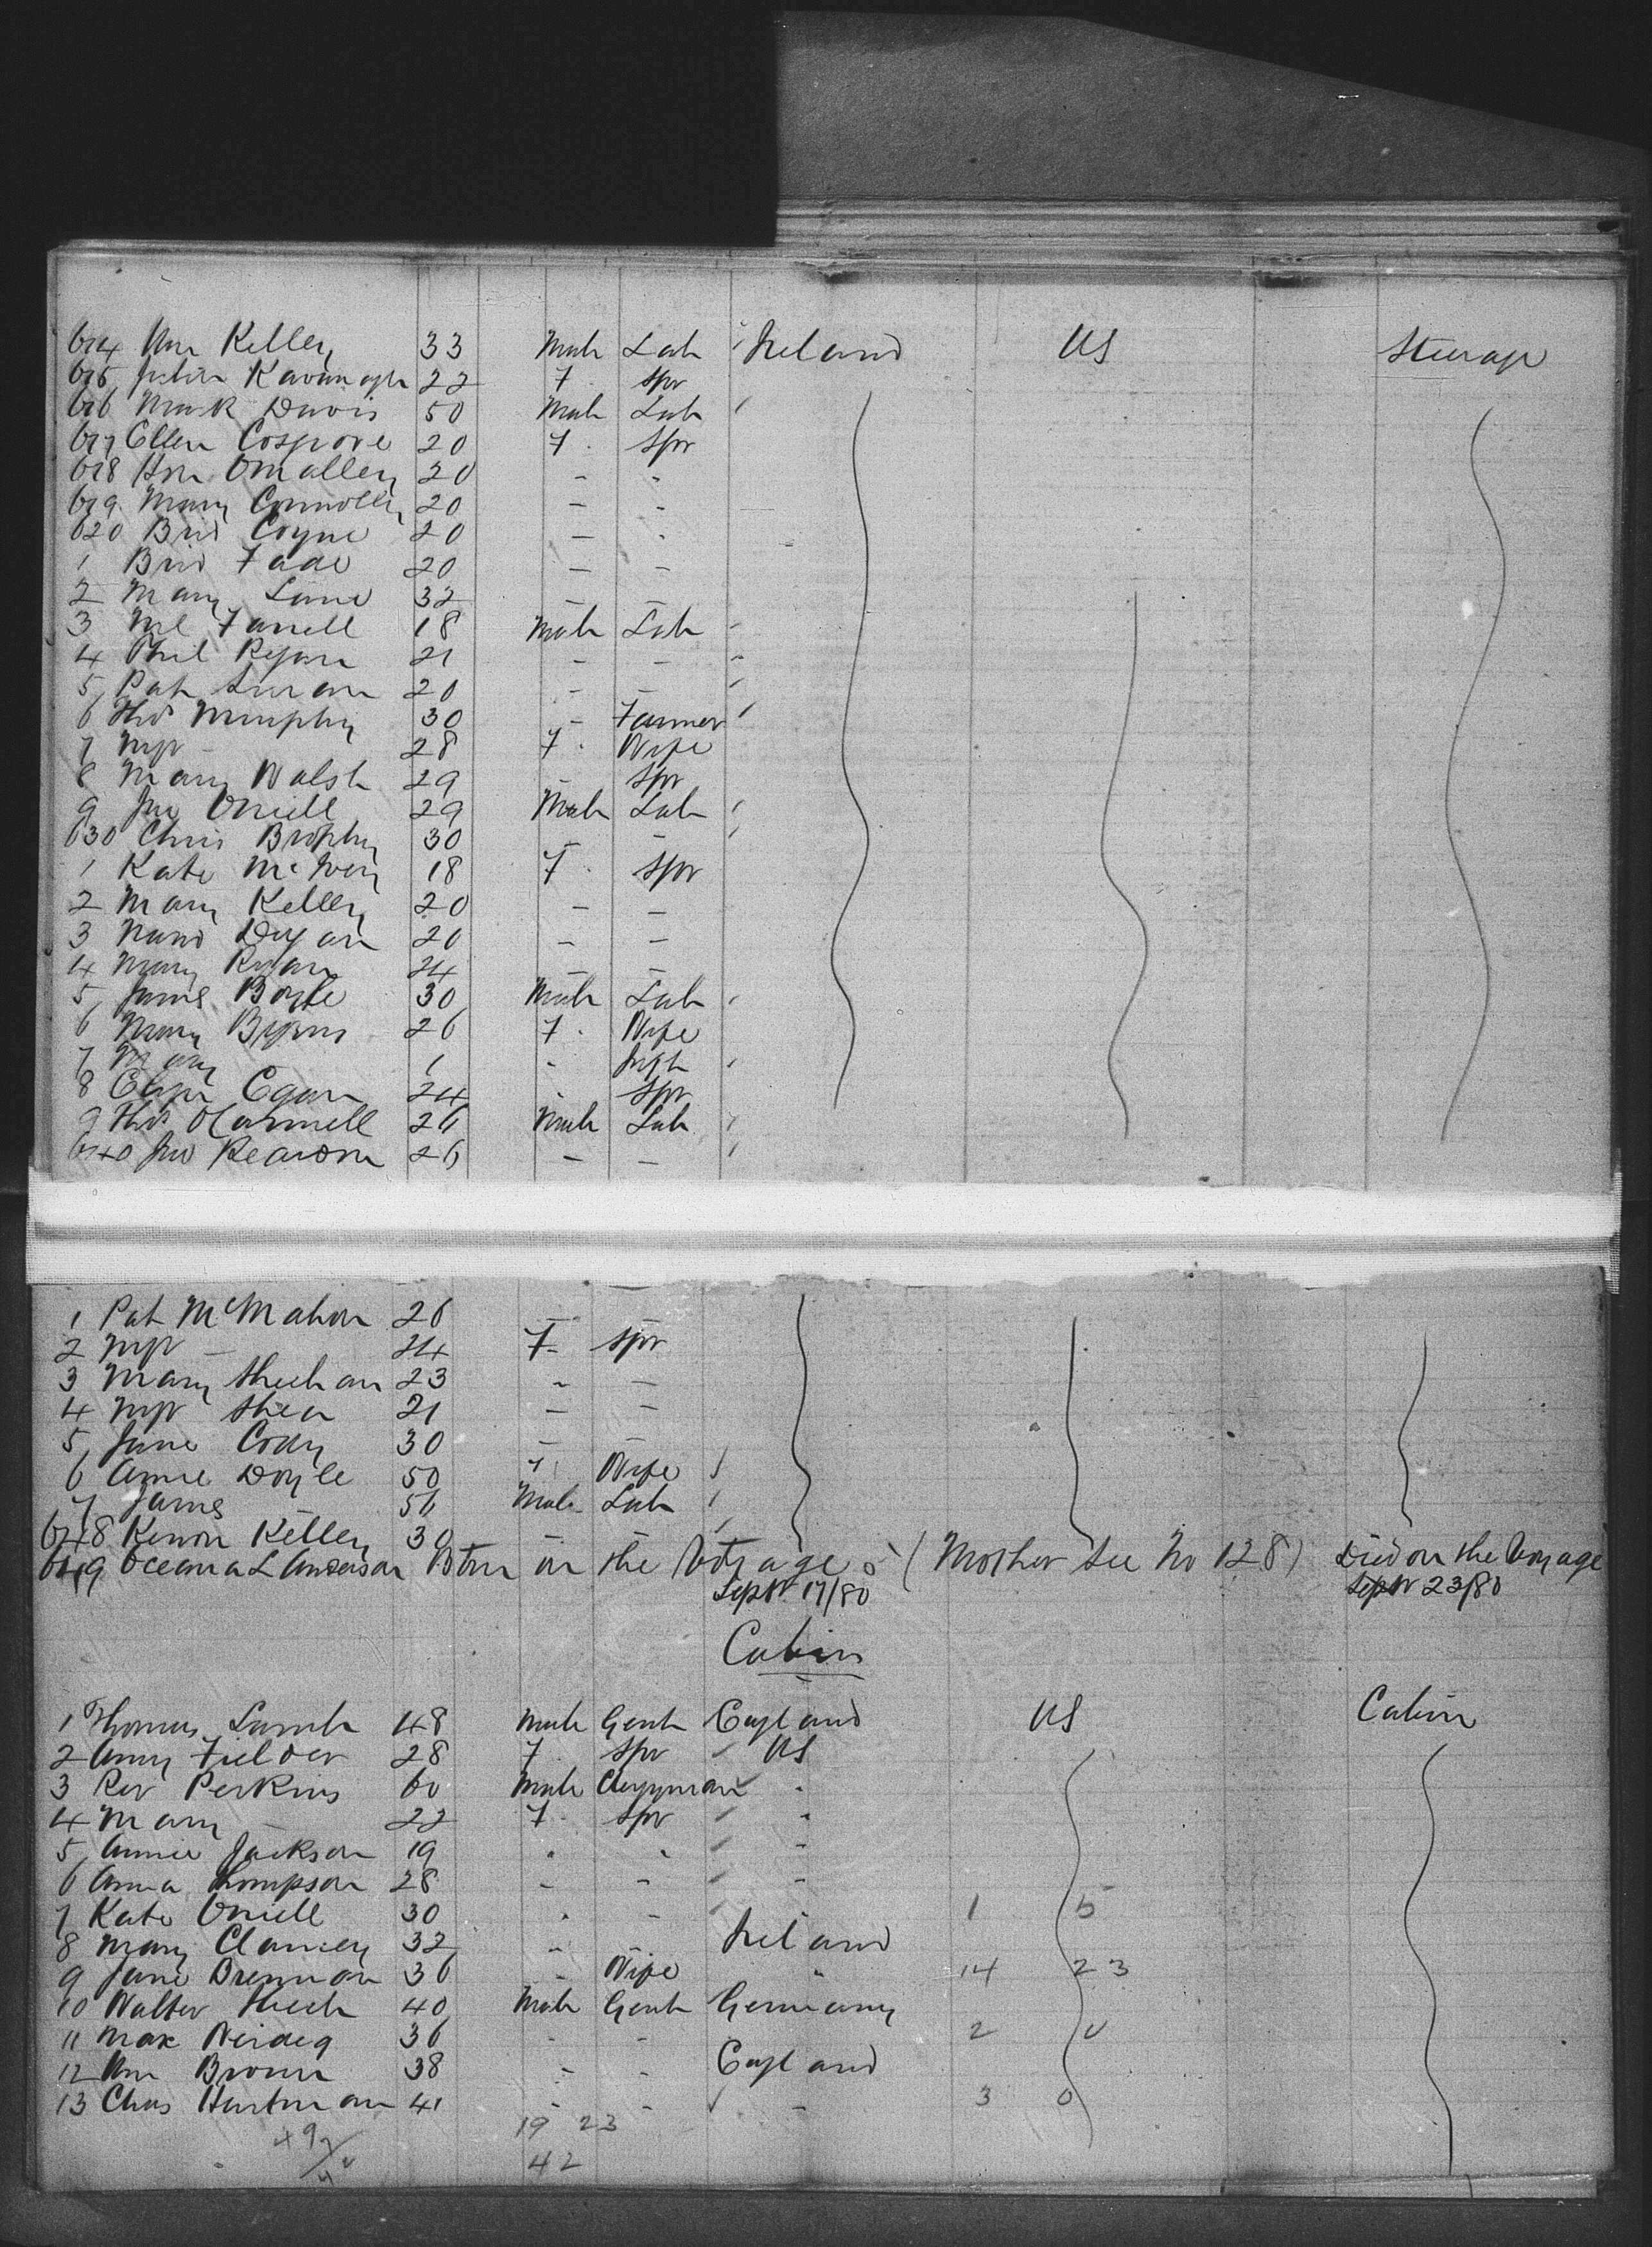 614 Wm Kelley 33 Male Lab Ireland US Steerage
615 Julia Kavanagh 22 F. Spr
616 Mark Davis 50 Male Lab
617 Ellen Cosgrove 20 F. Spr
618 Hon OMalley 20 - -
619 Mary Connolly 20 - -
620 Brid Coyne 20 - -
1 Brid Fade 20 - -
2 Mary Lane 32 - -
3 Ml Farrell 18 Male Lab
4 Phil Ryan 21 - -
5 Pat 20 - -
6 Thos Murphy 30 - Farmer
7 Mgr - 28 F. Wife
8 Mary Walsh 29 - Spr
9 Jno ONeill 29 Male Lab
630 Chris Brophy 30 - -
1 Kate 18 F. Spr
2 Mary Kelley 20 - -
3 Dugan 20 - -
4 Mary Ryan 24 - -
5 James Boyle 30 Male Lab
6 Mary Byrne 26 F. Wife
7 Mary 1 - Inft
8 Eliza Egan 24 - Spr
9 Thos OConnell 26 Male Lab
640 Jno Reardon 26 - -
1 Pat McMahon 26 - -
2 Mgr - 24 F. Spr
3 Mary Sheehan 23 - -
4 Mgr Shea 21 - -
5 Jane Cody 30 - -
6 Annie Doyle 50 F. Wife
7 James - 56 Male Lab
648 Kelley 30 - -
649 Oceana L Anderson Born on the Voyage (Mother See No 128) Died on the Voyage
Septr 17/80 Septr 23/80
Cabin
1 Thomas Lamb 48 Male Gent England US Cabin
2 Amy Fielder 28 F. Spr US
3 Rev Perkins 60 Male Clergyman -
4 Mary - 22 F. Spr -
5 Annie Jackson 19 - - -
6 Anna Thompson 28 - - -
7 Kate ONeill 30 - - 1 5
8 Mary Clancy 32 - Ireland
9 Jane Brennan 36 - Wife - 14 23
10 Walter 40 Male Gent Germany
11 Max Neideg 36 - - 2 0
12 Wm Brown 38 - - England
13 Chas Hartman 41 - - - 3 0
19 23
42